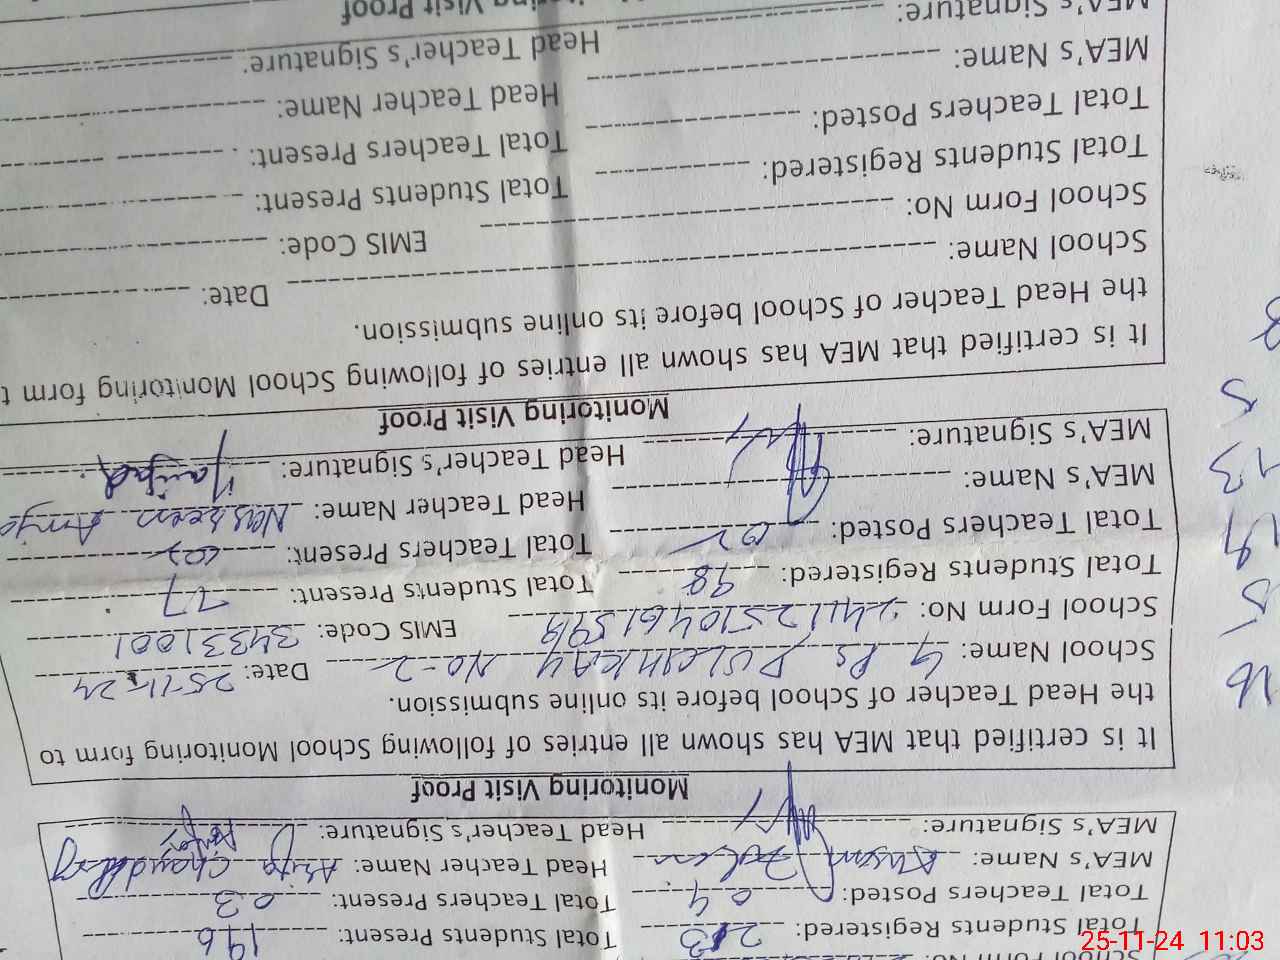 School Form No:
Total Students Registered: 213 Total Students Present: 196
Total Teachers Posted: 04 Total Teachers Present: 03
MEA's Name: Head Teacher Name: Chaudhry
MEA's Signature: Head Teacher's Signature:
Monitoring Visit Proof
It is certified that MEA has shown all entries of following of following School Monitoring form to
the Head Teacher of School before its online submission.
School Name: G Ps No-2 Date: 25-11-24
School Form No: EMIS Code: 34331001
Total Students Registered: 98 Total Students Present: 77
Total Teachers Posted: 02 Total Teachers Present: 02
MEA's Name: Head Teacher Name: Nasreen
MEA's Signature: Head Teacher's Signature:
Monitoring Visit Proof
It is certified that MEA has shown all entries of following School Monitoring form t
the Head Teacher of School before its online submission.
School Name: Date:
School Form No: EMIS Code:
Total Students Registered: Total Students Present:
Total Teachers Posted: Total Teachers Present:
MEA's Name: Head Teacher Name:
MEA's Signature: Head Teacher's Signature:
Visit Proof
16
5
13
5
25-11-24 11:03